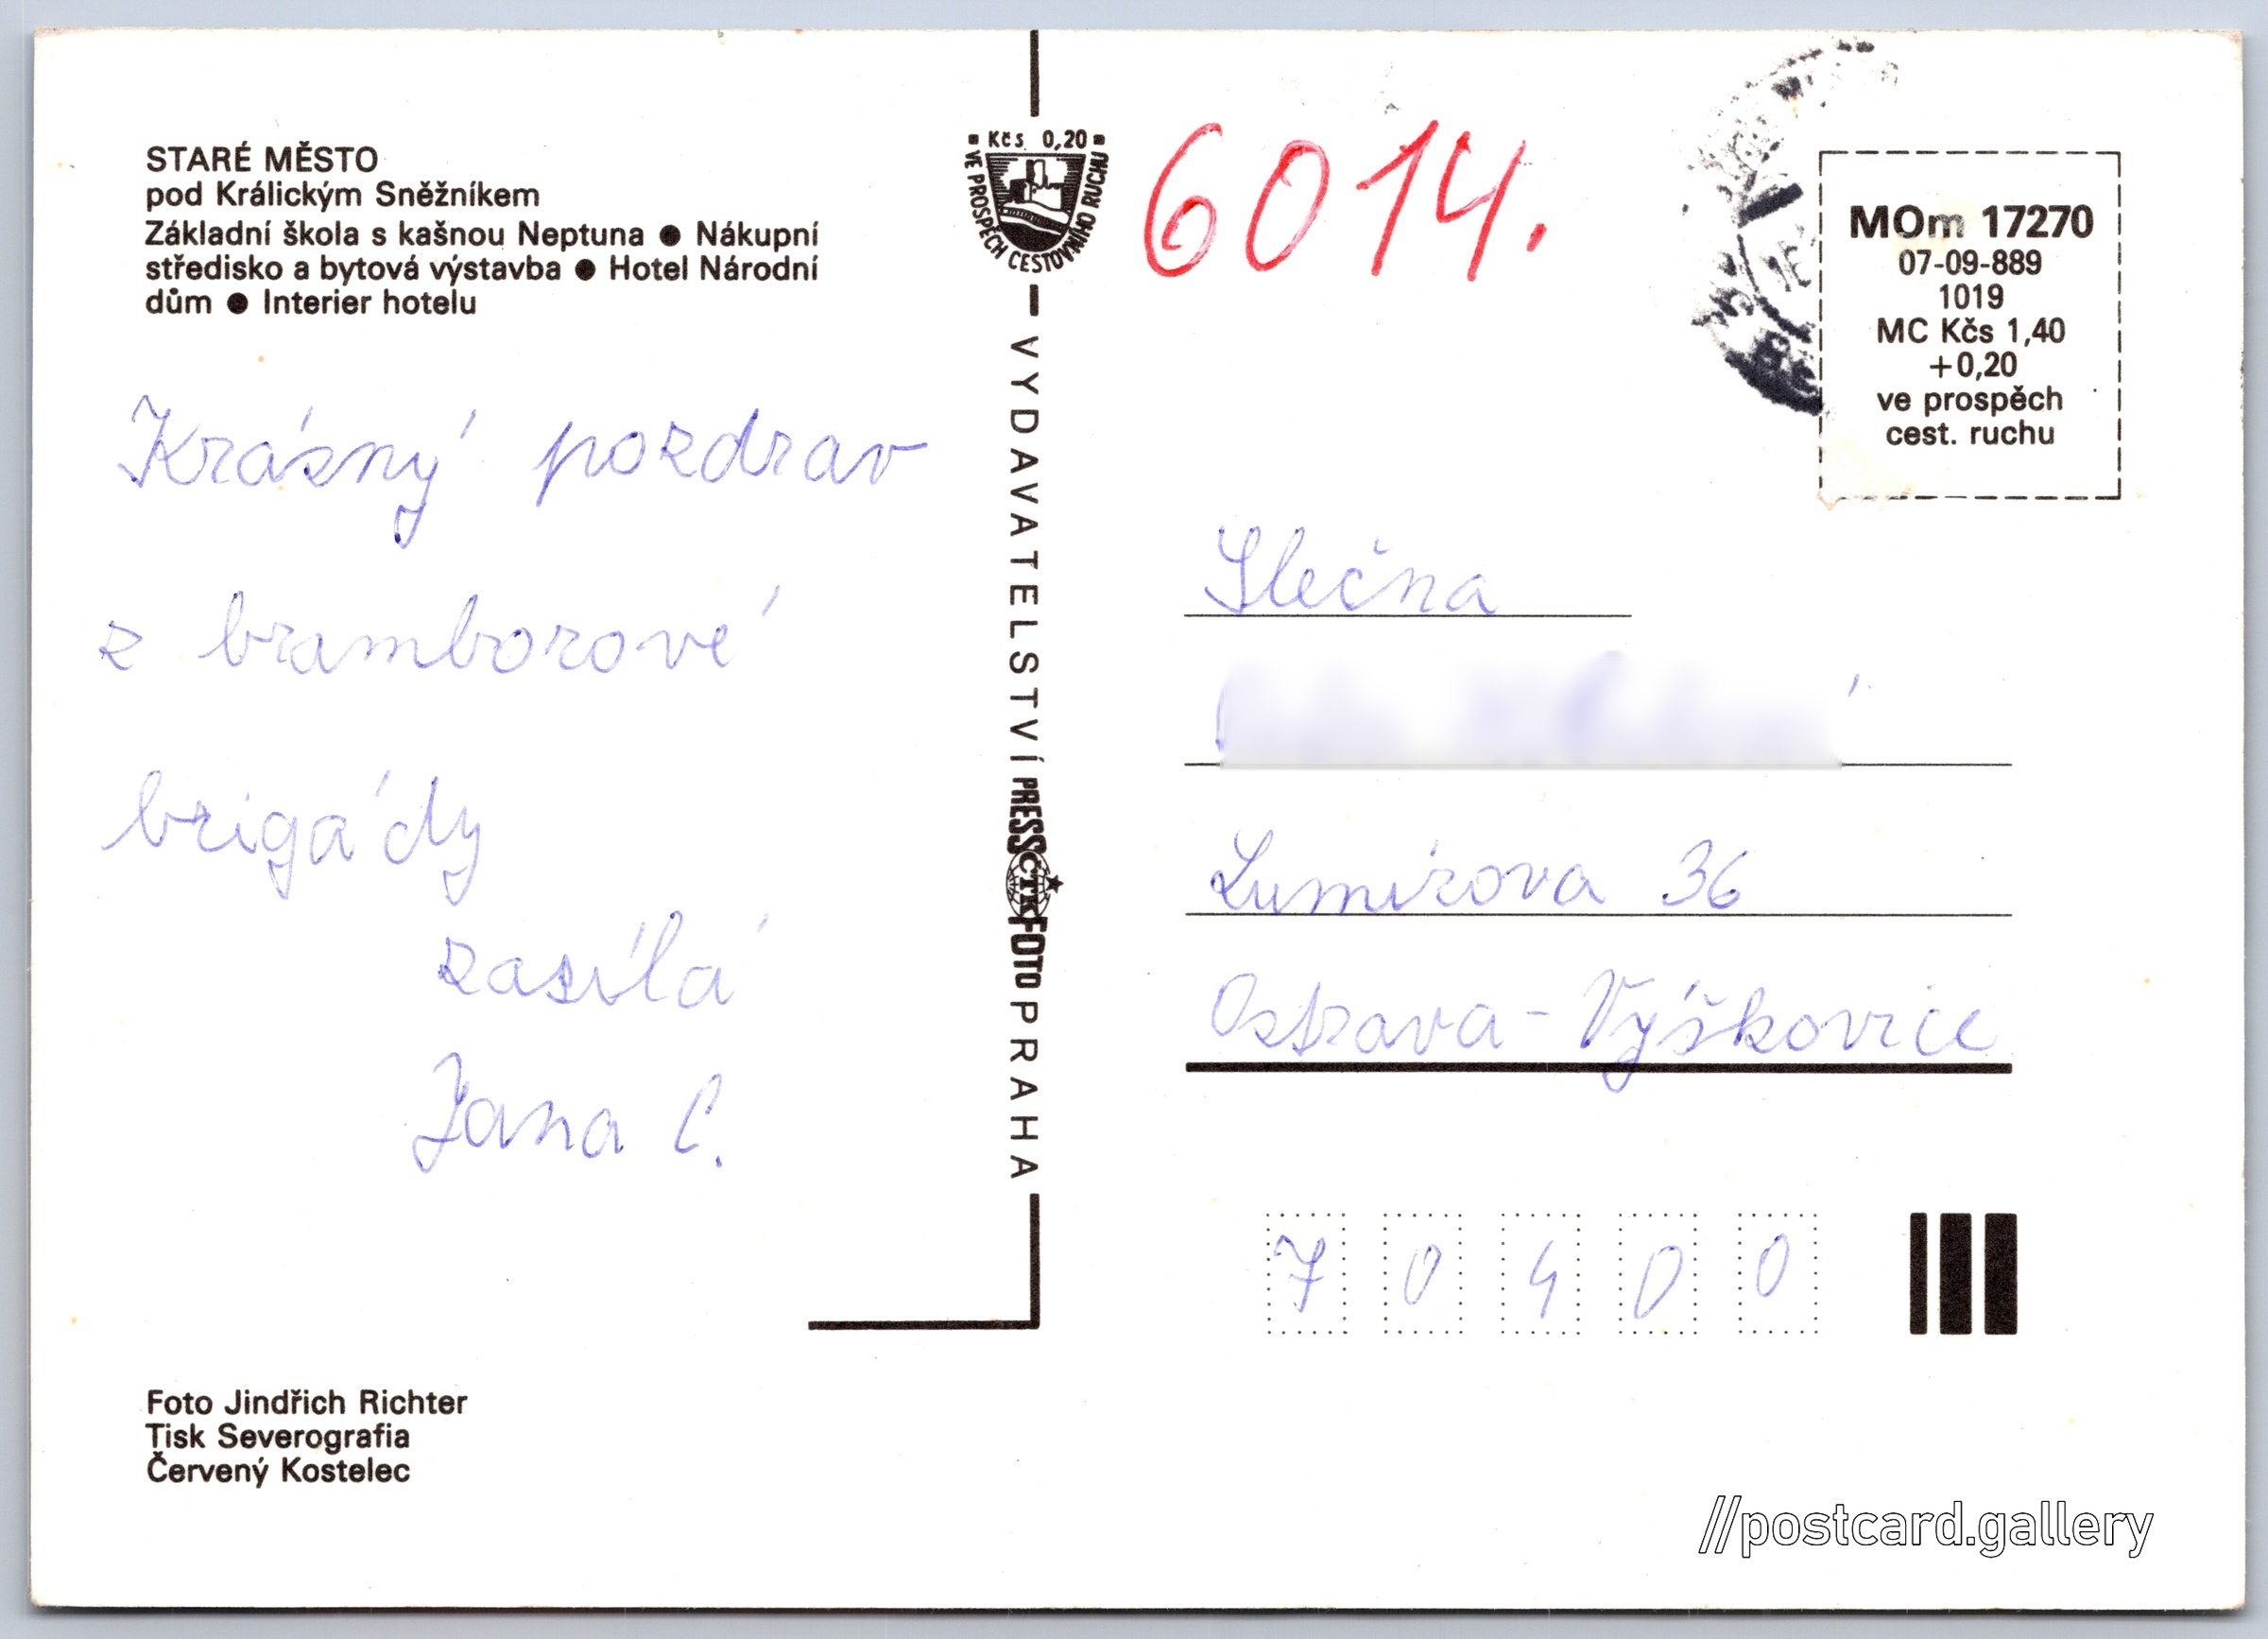 STARÉ MĚSTO
pod Králickým Sněžníkem
Základní škola s kašnou Neptuna ● Nákupní
středisko a bytová výstavba ● Hotel Národní
dům ● Interier hotelu
Krásný pozdrav
z bramborové
brigády
zasílá
Jana C.
Foto Jindřich Richter
Tisk Severografia
Červený Kostelec
Kčs 0,20
VE PROSPĚCH CESTOVNÍHO RUCHU
VYDAVATELSTVÍ PRESSFOTO PRAHA
ČTK
6014.
MOm 17270
07-09-889
1019
MC Kčs 1,40
+0,20
ve prospěch
cest. ruchu
Slečna
Lumírova 36
Ostrava - Výškovice
7 0 4 0 0
//postcard.gallery